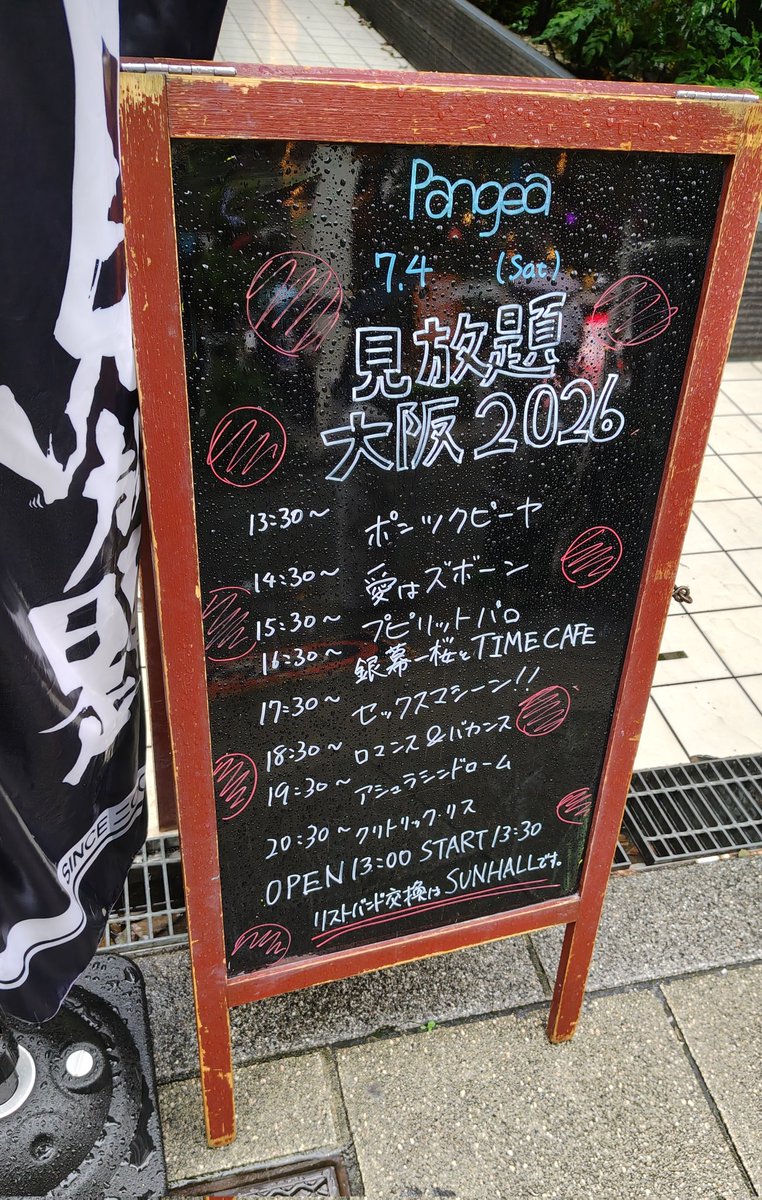 Pangea
7.4 (Sat)
見放題
大阪2026
13:30~ ポニツクピーヤ
14:30~ 愛はズボーン
15:30~ プピリットパロ
16:30~ 銀幕一桜とTIME CAFE
17:30~ セックスマシーン!!
18:30~ ロマンス&バカンス
19:30~ アシュラシンドローム
20:30~ クリトリック・リス
OPEN 13:00 START 13:30
リストバンド交換は SUNHALLです。
見放題
SINCE